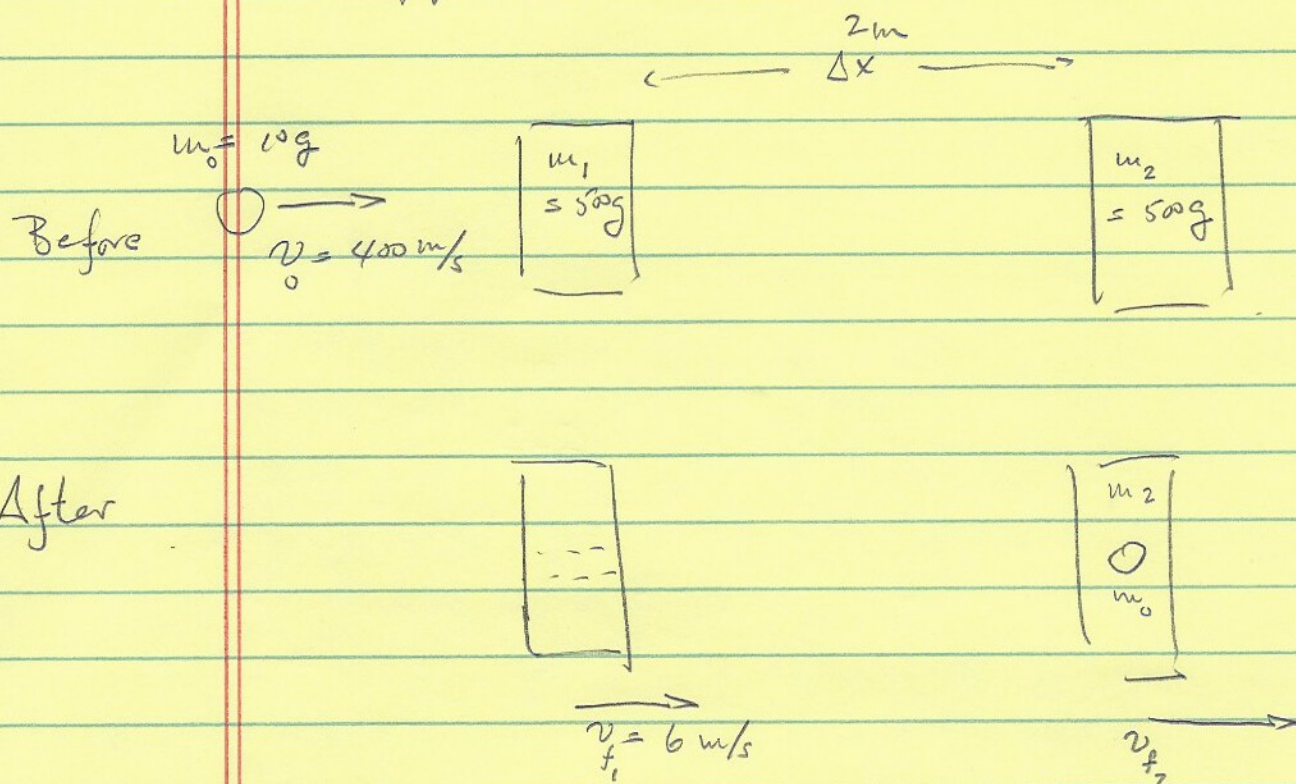 2m
Δx
m₀ = 10g
Before
v₀ = 400 m/s
m₁
= 500g
m₂
= 500g
After
m₂
m₀
v_f₁ = 6 m/s
v_f₂